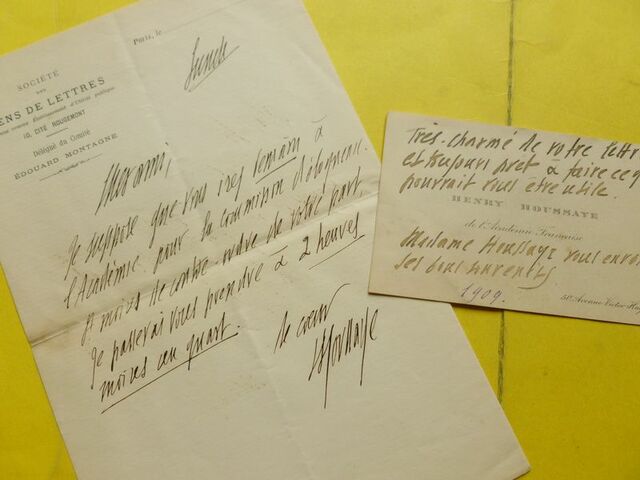 PARIS, LE
SOCIÉTÉ
DES
ENS DE LETTRES
10, CITÉ ROUGEMONT
Délégué du Comité
EDOUARD MONTAGNE
Lundi
Cher ami,
Je suppose que vous irez demain à
l'Académie pour la commission
et moins de contre-ordre de votre part
je passerai vous prendre à 2 heures
moins un quart.
de cœur
HHoussaye
Très-charmé de votre lettr
et toujours prêt à faire ce q
pourrait vous être utile.
HENRY HOUSSAYE
de l'Académie Française
Madame Houssaye vous envoi
ses bons souvenirs
1909.
Avenue Victor-Hug